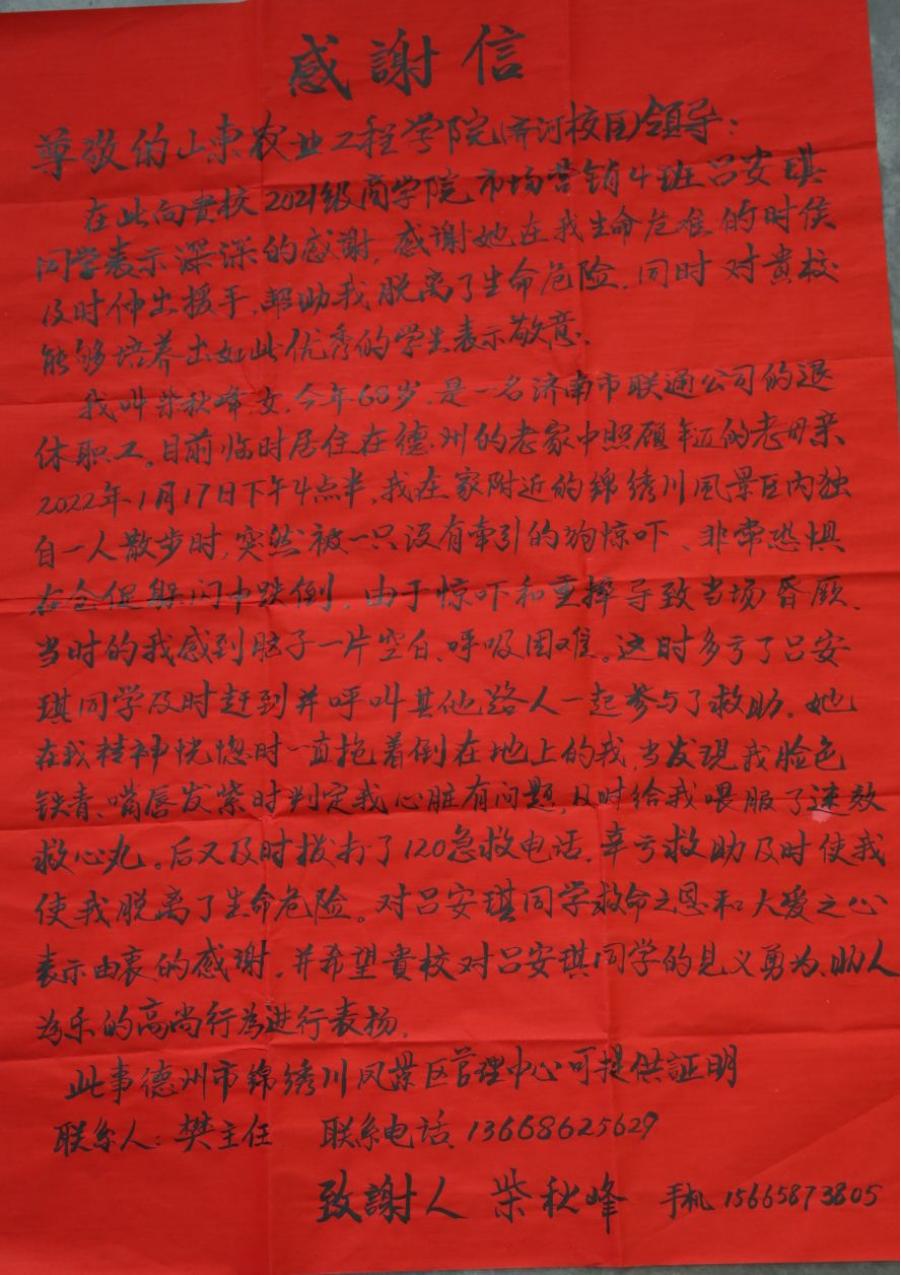 感謝信
尊敬的山东农业工程学院(齐河校区)领导:
在此向貴校2021级商学院市场营销4班吕安琪
同学表示深深的感谢,感谢她在我生命危难的时侯
及时伸出援手,帮助我脱离了生命危险,同时对貴校
能够培养出如此优秀的学生表示敬意.
我叫柴秋峰,女,今年68岁,是一名济南市联通公司的退
休职工。目前临时居住在德州的老家中照顾年迈的老母亲
2022年1月17日下午4点半,我在家附近的绵绣川风景区内独
自一人散步时,突然被一只没有牵引的狗惊吓、非常恐惧
在仓促躲闪中跌倒,由于惊吓和重摔导致当场昏厥,
当时的我感到脑子一片空白、呼吸困难。这时多亏了吕安
琪同学及时赶到并呼叫其他路人一起参与了救助,她
在我精神恍惚时一直抱着倒在地上的我,当发现我脸色
铁青、嘴唇发紫时判定我心脏有问题,及时给我喂服了速效
救心丸。后又及时拨打了120急救电话,幸亏救助及时使我
使我脱离了生命危险。对吕安琪同学救命之恩和大爱之心
表示由衷的感谢,并希望貴校对吕安琪同学的見义勇为、助人
为乐的高尚行為进行表扬.
此事德州市绵绣川风景区管理中心可提供証明
联系人:樊主任 联系电话、13668625629
致謝人 柴秋峰 手机 15665873805